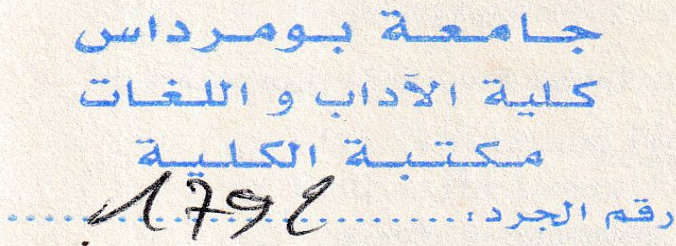 جامعة بومرداس
كلية الآداب و اللغات
مكتبة الكلية
رقم الجرد: 1792